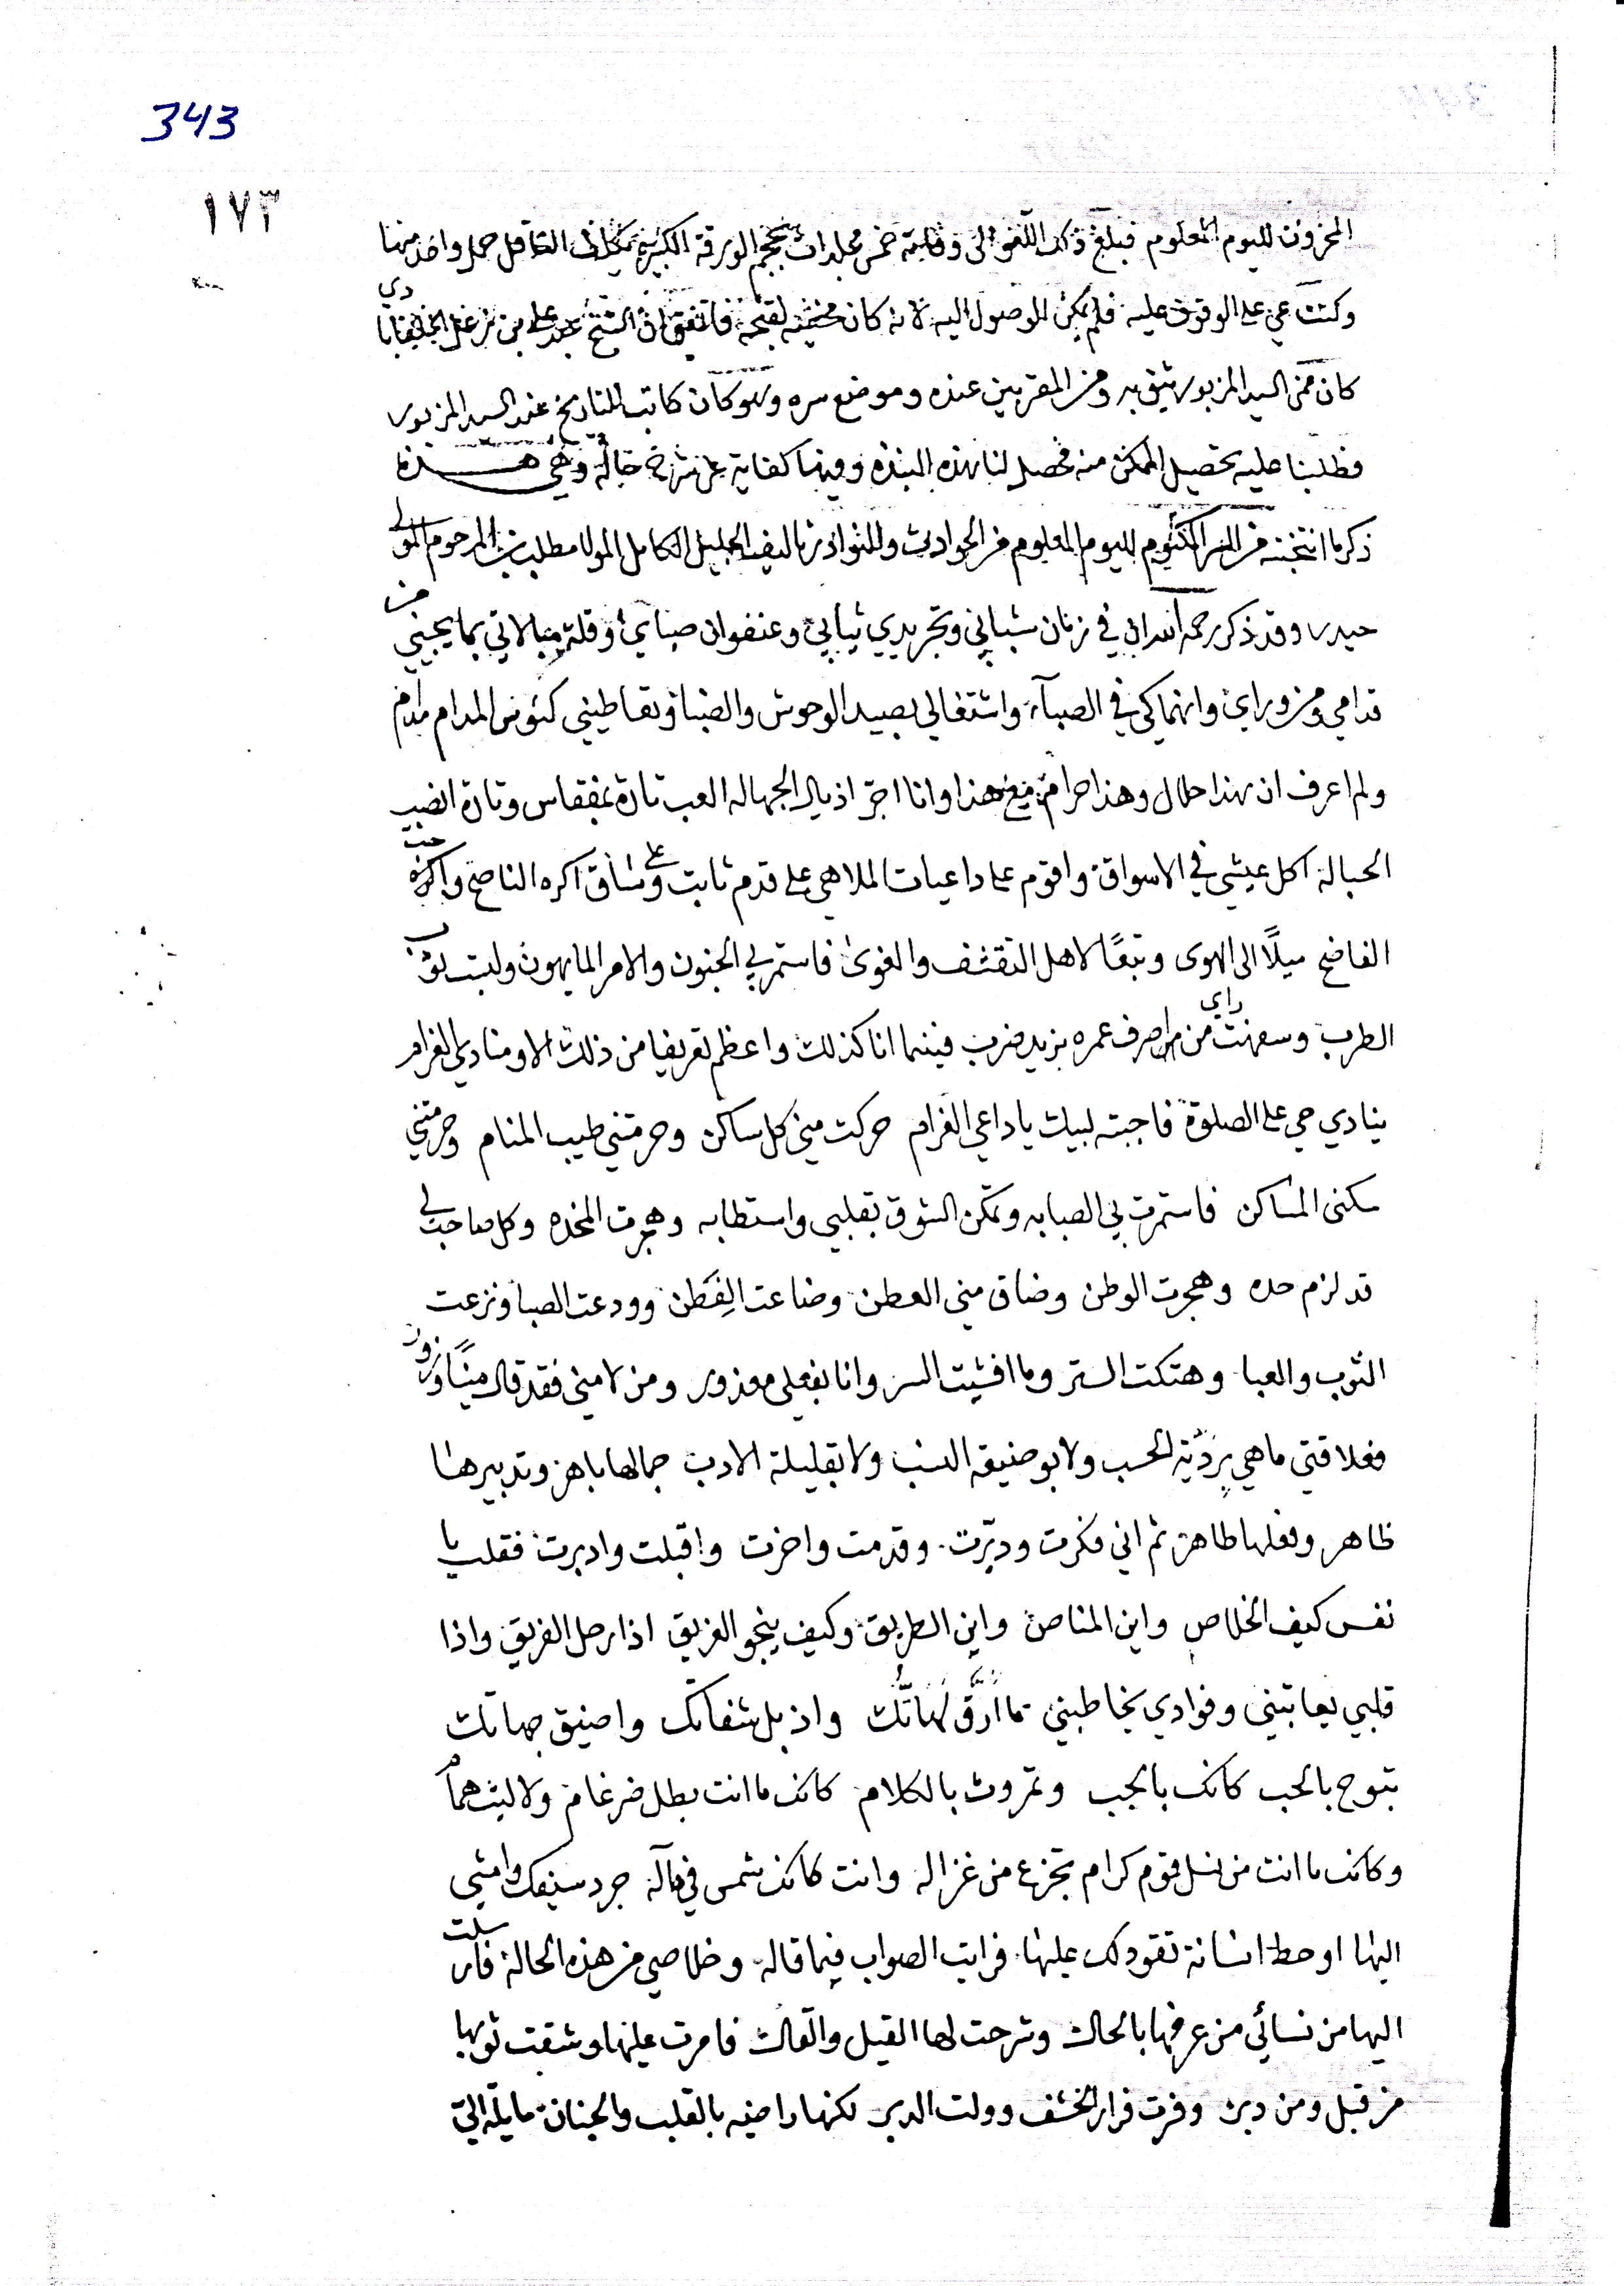 343
١٧٣
المخزون لليوم المعلوم فبلغ ذلك خمس مجلدات بحجم الورقة الكبيرة
وكنت على الوقوف عليه فلم يكن الوصول اليه لانه كان فاتفق ان الشيخ علي بن
كان ممن السيد المزبور يثق به ومن المقربين عنده وموضع سره وهو كان كاتب التاريخ عند السيد المزبور
فطلبنا عليه تحصيل الممكن منه فحصل لنا بهذه النبذة وفيها كفاية عن شرح حاله وهي هذه
ذكر ما انتخبته من السر المكتوم لليوم المعلوم من الحوادث والنوادر تاليف الجليل الكامل المولا مطلب بن المرحوم المولى
حيدر وقد ذكر رحمه الله اني في زمان شبابي وتجريدي ثيابي وعنفوان صباي وقلة مبالاتي بما يجيني من
قدامي ومن وراي وانهماكي في الصبآء واشتغالي بصيد الوحوش والضبا وتعاطيني كئوس المدام
ولم اعرف ان هذا حلال وهذا حرام هذا وانا اجر اذيال الجهاله العب تارة وتارة انصب
الحبالة اكل عيشي في الاسواق واقوم على داعيات الملاهي على قدم ثابت وعلى ساق اكره الناصح واكره حب
الفاضح ميلًا الى الهوى وتبعًا لاهل التقشف والغوى فاستمر بي الجنون والامر لما يهون ولبست ثوب
الطرب وسفهت راي من صرف عمره بزيد ضرب فبينما انا كذلك واعظم تعريفا من ذلك الا ومنادي الغرام
ينادي حي على الصلوة فاجبته لبيك يا داعي الغرام حركت مني كل ساكن وحرمتني طيب المنام وحرمتني
سكنى المساكن فاستمرت بي الصبابه وتمكن الشوق بقلبي واستطابه وهجرت المخده وكل صاحب لي
قد لزم حده وهجرت الوطن وضاق مني العطن وضاعت الفِطَن وودعت الصبا ونزعت
الثوب والعبا وهتكت الستر وما افشيت السر وانا بفعلي معذور ومن لامني فقد قال مينًا وزور
فعلاقتي ما هي بردّية الحسب ولا بوضيعة النسب ولا بقليلة الادب جمالها باهر وتدبيرها
ظاهر وفعلها طاهر ثم اني فكرت ودبّرت وقدمت واخرت واقبلت وادبرت فقلت يا
نفس كيف الخلاص واين المناص واين الطريق وكيف ينجو الغريق اذا رحل الفريق واذا
قلبي يعاتبني وفوادي يخاطبني ما ارَقّ لهَاتَك واذبل شفاتك واضيق جهاتك
تبوح بالحب كانك بالجب وتمروت بالكلام كانك ما انت بطل ضرغام ولا ليث همام
وكانك ما انت من نسل قوم كرام تجزع من غزاله وانت كانك شمس في هآلة جرد سيفك وامشي
اليها او حط انسانة تقودك عليها فرايت الصواب فيما قاله وخلاصي من هذه الحالة فارسلت
اليها من نسائي من عرفها بالحال وشرحت لها القيل والقال فامرت عليها وشقت ثوبها
من قبل ومن دبر وفرت فرار الخشف وولت الدبر لكنها راضيه بالقلب والجنان مايلة الي